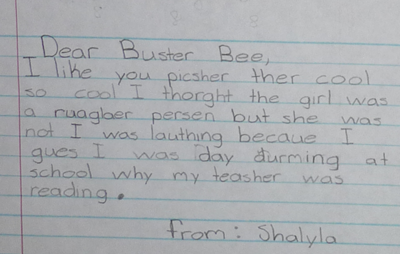 Dear Buster Bee,
I like you picsher ther cool
so cool I thorght the girl was
a ruagber persen but she was
not I was lauthing becaue I
gues I was day durming at
school why my teasher was
reading.
from: Shalyla